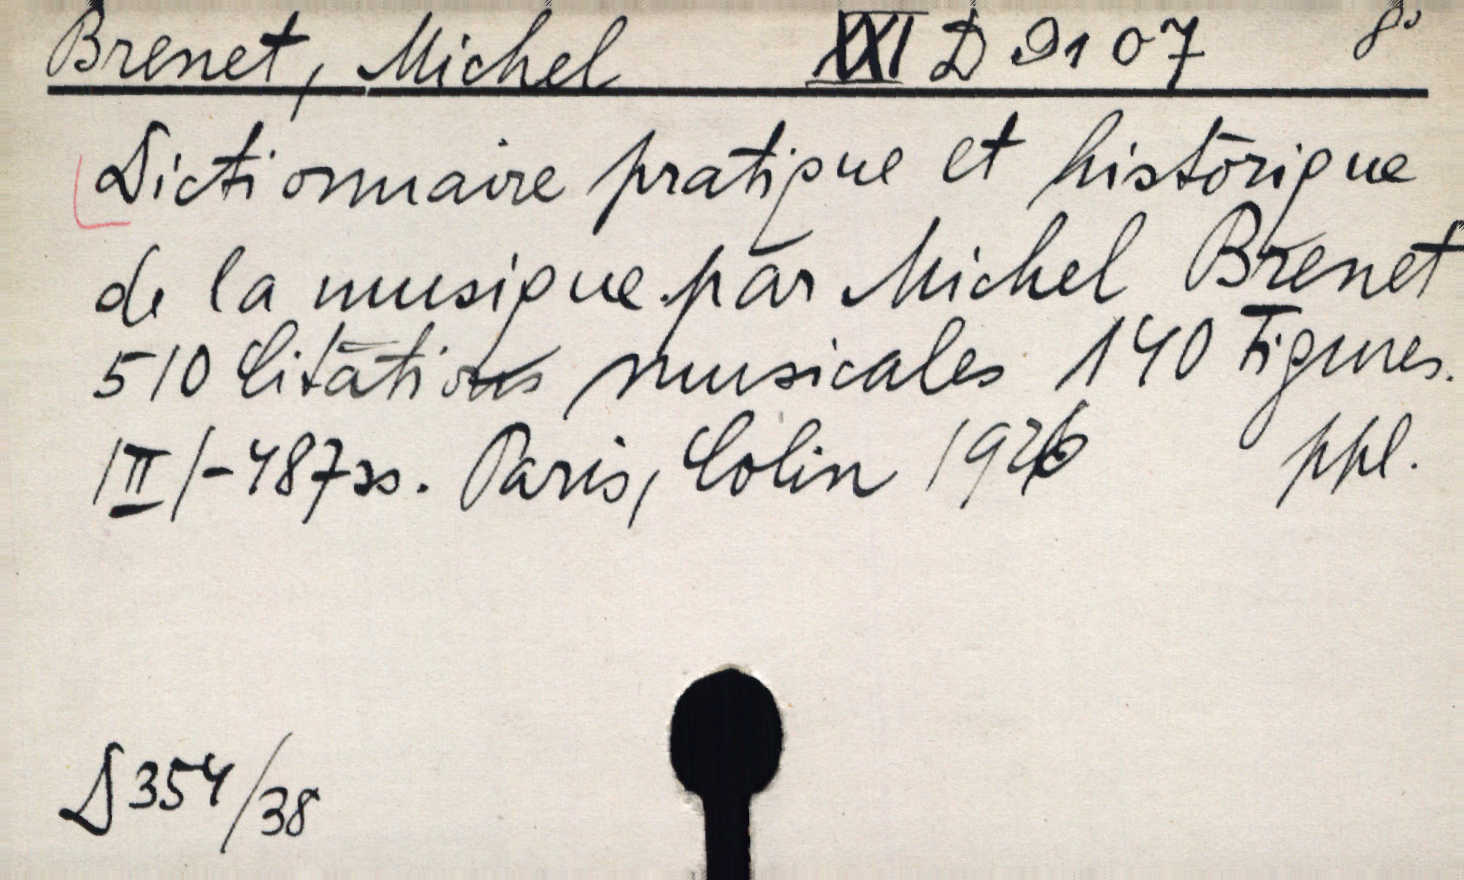 Brenet, Michel XXI D 9107 8°
Dictionnaire pratique et historique
de la musique par Michel Brenet
510 Citations musicales 140 Figures.
/II/-487 ss. Paris, Colin 1926 ppl.
D 354/38